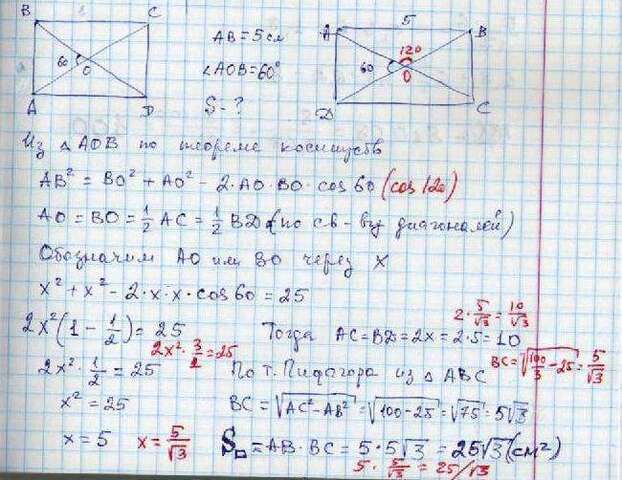 B C
60
O
A D
AB = 5 см
∠AOB = 60°
S - ?
5
A B
120
60
O
D C
Из △ AOB по теореме косинусов
AB² = BO² + AO² - 2·AO·BO·cos 60 (cos 120)
AO = BO = 1/2 AC = 1/2 BD (по св-ву диагоналей)
Обозначим AO или BO через x
x² + x² - 2·x·x·cos 60 = 25
2x²(1 - 1/2) = 25
2x²·3/2 = 25
2x²·1/2 = 25
x² = 25
x = 5 x = 5/√3
2·5/√3 = 10/√3
Тогда AC = BD = 2x = 2·5 = 10
По т. Пифагора из △ ABC
BC = √(100/3 - 25) = 5/√3
BC = √(AC² - AB²) = √(100 - 25) = √75 = 5√3
S□ = AB·BC = 5·5√3 = 25√3 (см²)
5·5/√3 = 25/√3